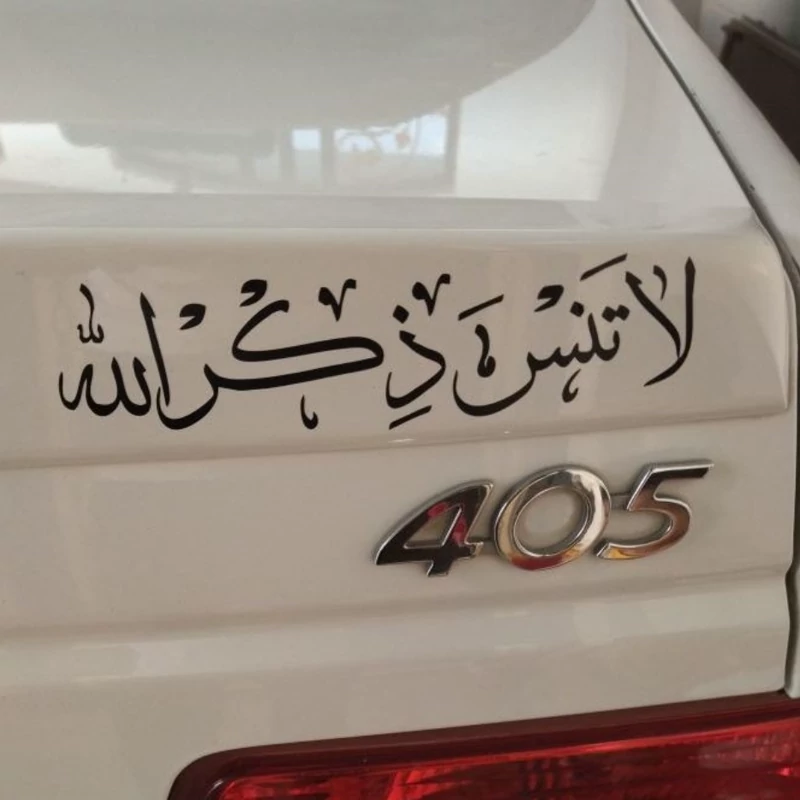 لا تَنْسَ ذِكْر الله
405